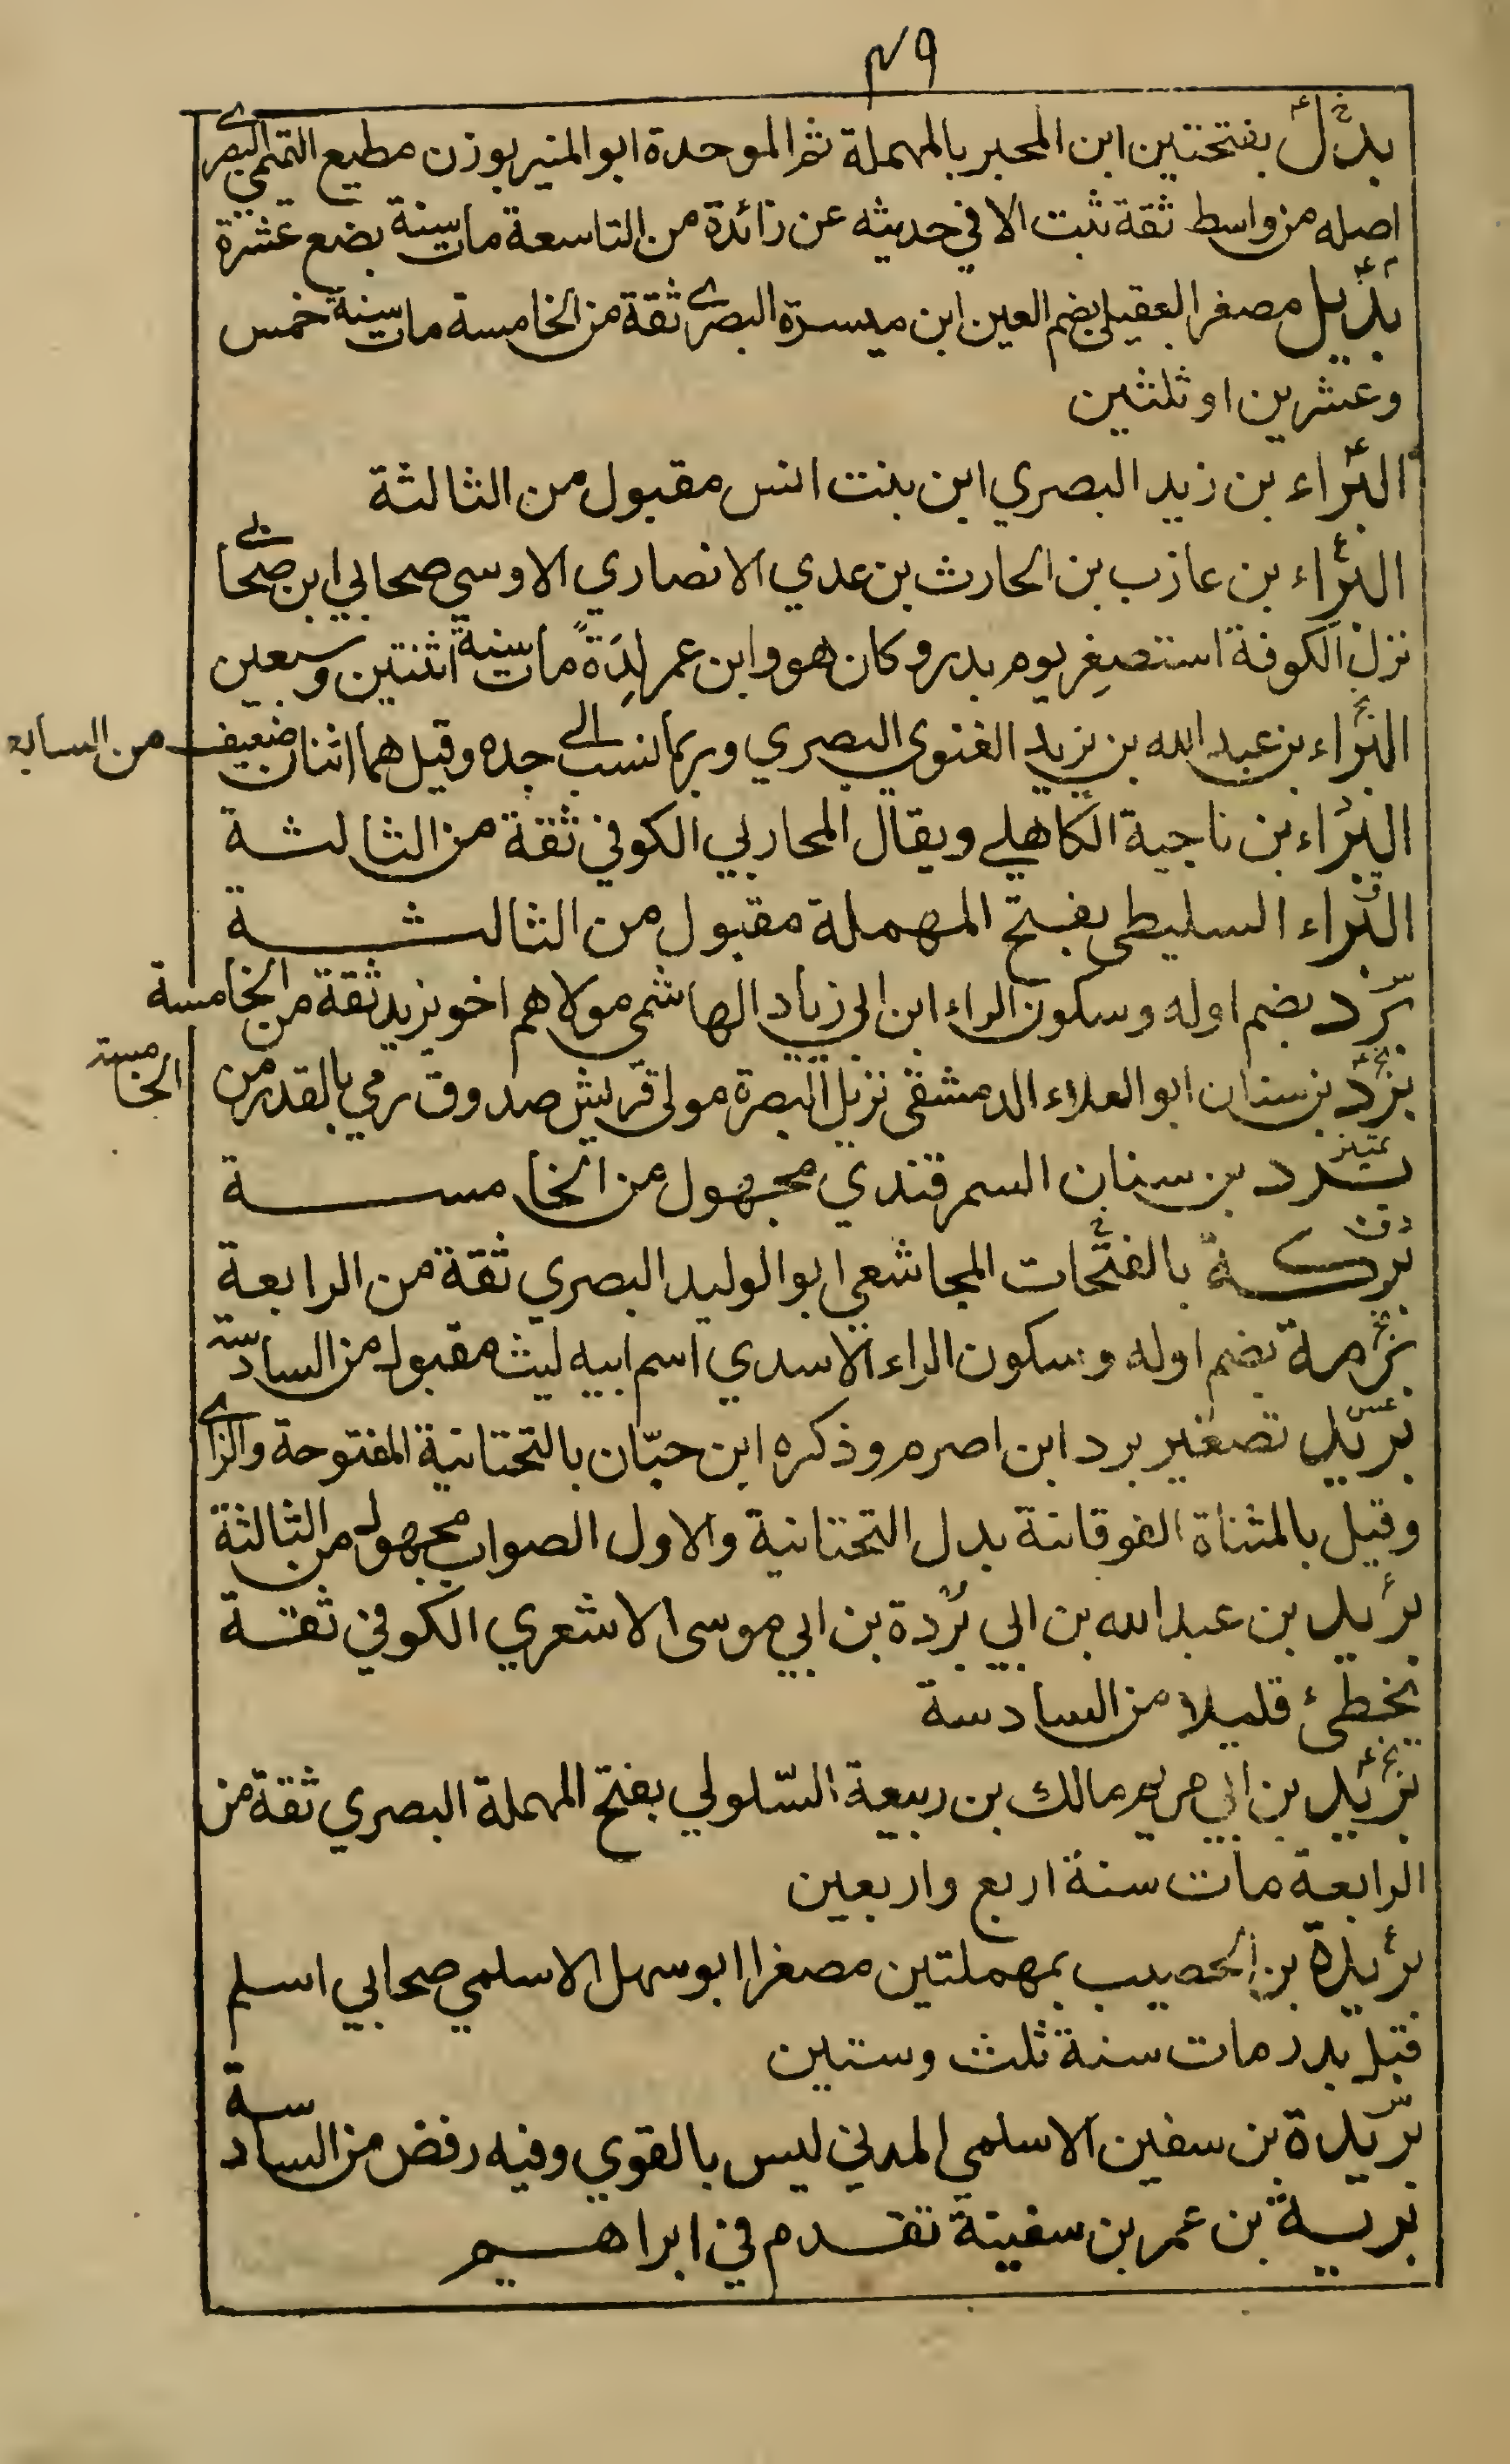 ٤٩
بدل بفتحتين ابن المحبر بالمهملة ثم الموحدة ابو المنير بوزن مطيع التميمي البصري
اصله من واسط ثقة ثبت الا في حديثه عن زائدة من التاسعة مات سنة بضع عشرة
بديل مصغر العقيلي بضم العين ابن ميسرة البصري ثقة من الخامسة مات سنة خمس
وعشرين او ثلثين
البراء بن زيد البصري ابن بنت انس مقبول من الثالثة
البراء بن عازب بن الحارث بن عدي الانصاري الاوسي صحابي ابن صحابي
نزل الكوفة استصغر يوم بدر وكان هو وابن عمر لِدَةً مات سنة اثنتين وسبعين
البراء بن عبد الله بن يزيد الغنوي البصري وربما نسب الى جده وقيل هما اثنان ضعيف من السابعة
البراء بن ناجية الكاهلي ويقال المحاربي الكوفي ثقة من الثالثة
البراء السليطي بفتح المهملة مقبول من الثالثة
برد بضم اوله وسكون الراء ابن ابي زياد الهاشمي مولاهم اخو يزيد ثقة من الخامسة
برد بن سنان ابو العلاء الدمشقي نزيل البصرة مولى قريش صدوق رمي بالقدر من الخامسة
تمييز برد بن سنان السمرقندي مجهول من الخامسة
بركة بالفتحات المجاشعي ابو الوليد البصري ثقة من الرابعة
برمة بضم اوله وسكون الراء الاسدي اسم ابيه ليث مقبول من السادسة
بريد تصغير برد ابن اصرم وذكره ابن حبّان بالتحتانية المفتوحة والزاي
وقيل بالمثناة الفوقانة بدل التحتانية والاول الصواب مجهول من الثالثة
بريد بن عبد الله بن ابي بُردة بن ابي موسى الاشعري الكوفي ثقة
يخطئ قليلا من السادسة
بريد بن ابي مريم مالك بن ربيعة السّلولي بفتح المهملة البصري ثقة من
الرابعة مات سنة اربع واربعين
بريدة بن الحصيب بمهملتين مصغرا ابو سهل الاسلمي صحابي اسلم
قبل بدر مات سنة ثلث وستين
بريدة بن سفين الاسلمي المدني ليس بالقوي وفيه رفض من السادسة
برية بن عمر بن سفينة تقدم في ابراهيم